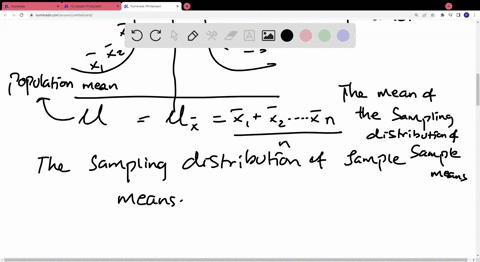 x̄₁ x̄₂
Population mean
μ = μx̄ = x̄₁ + x̄₂ ..... x̄n
n
The mean of
the Sampling
distribution of
Sample
means
The Sampling distribution of Sample
means.